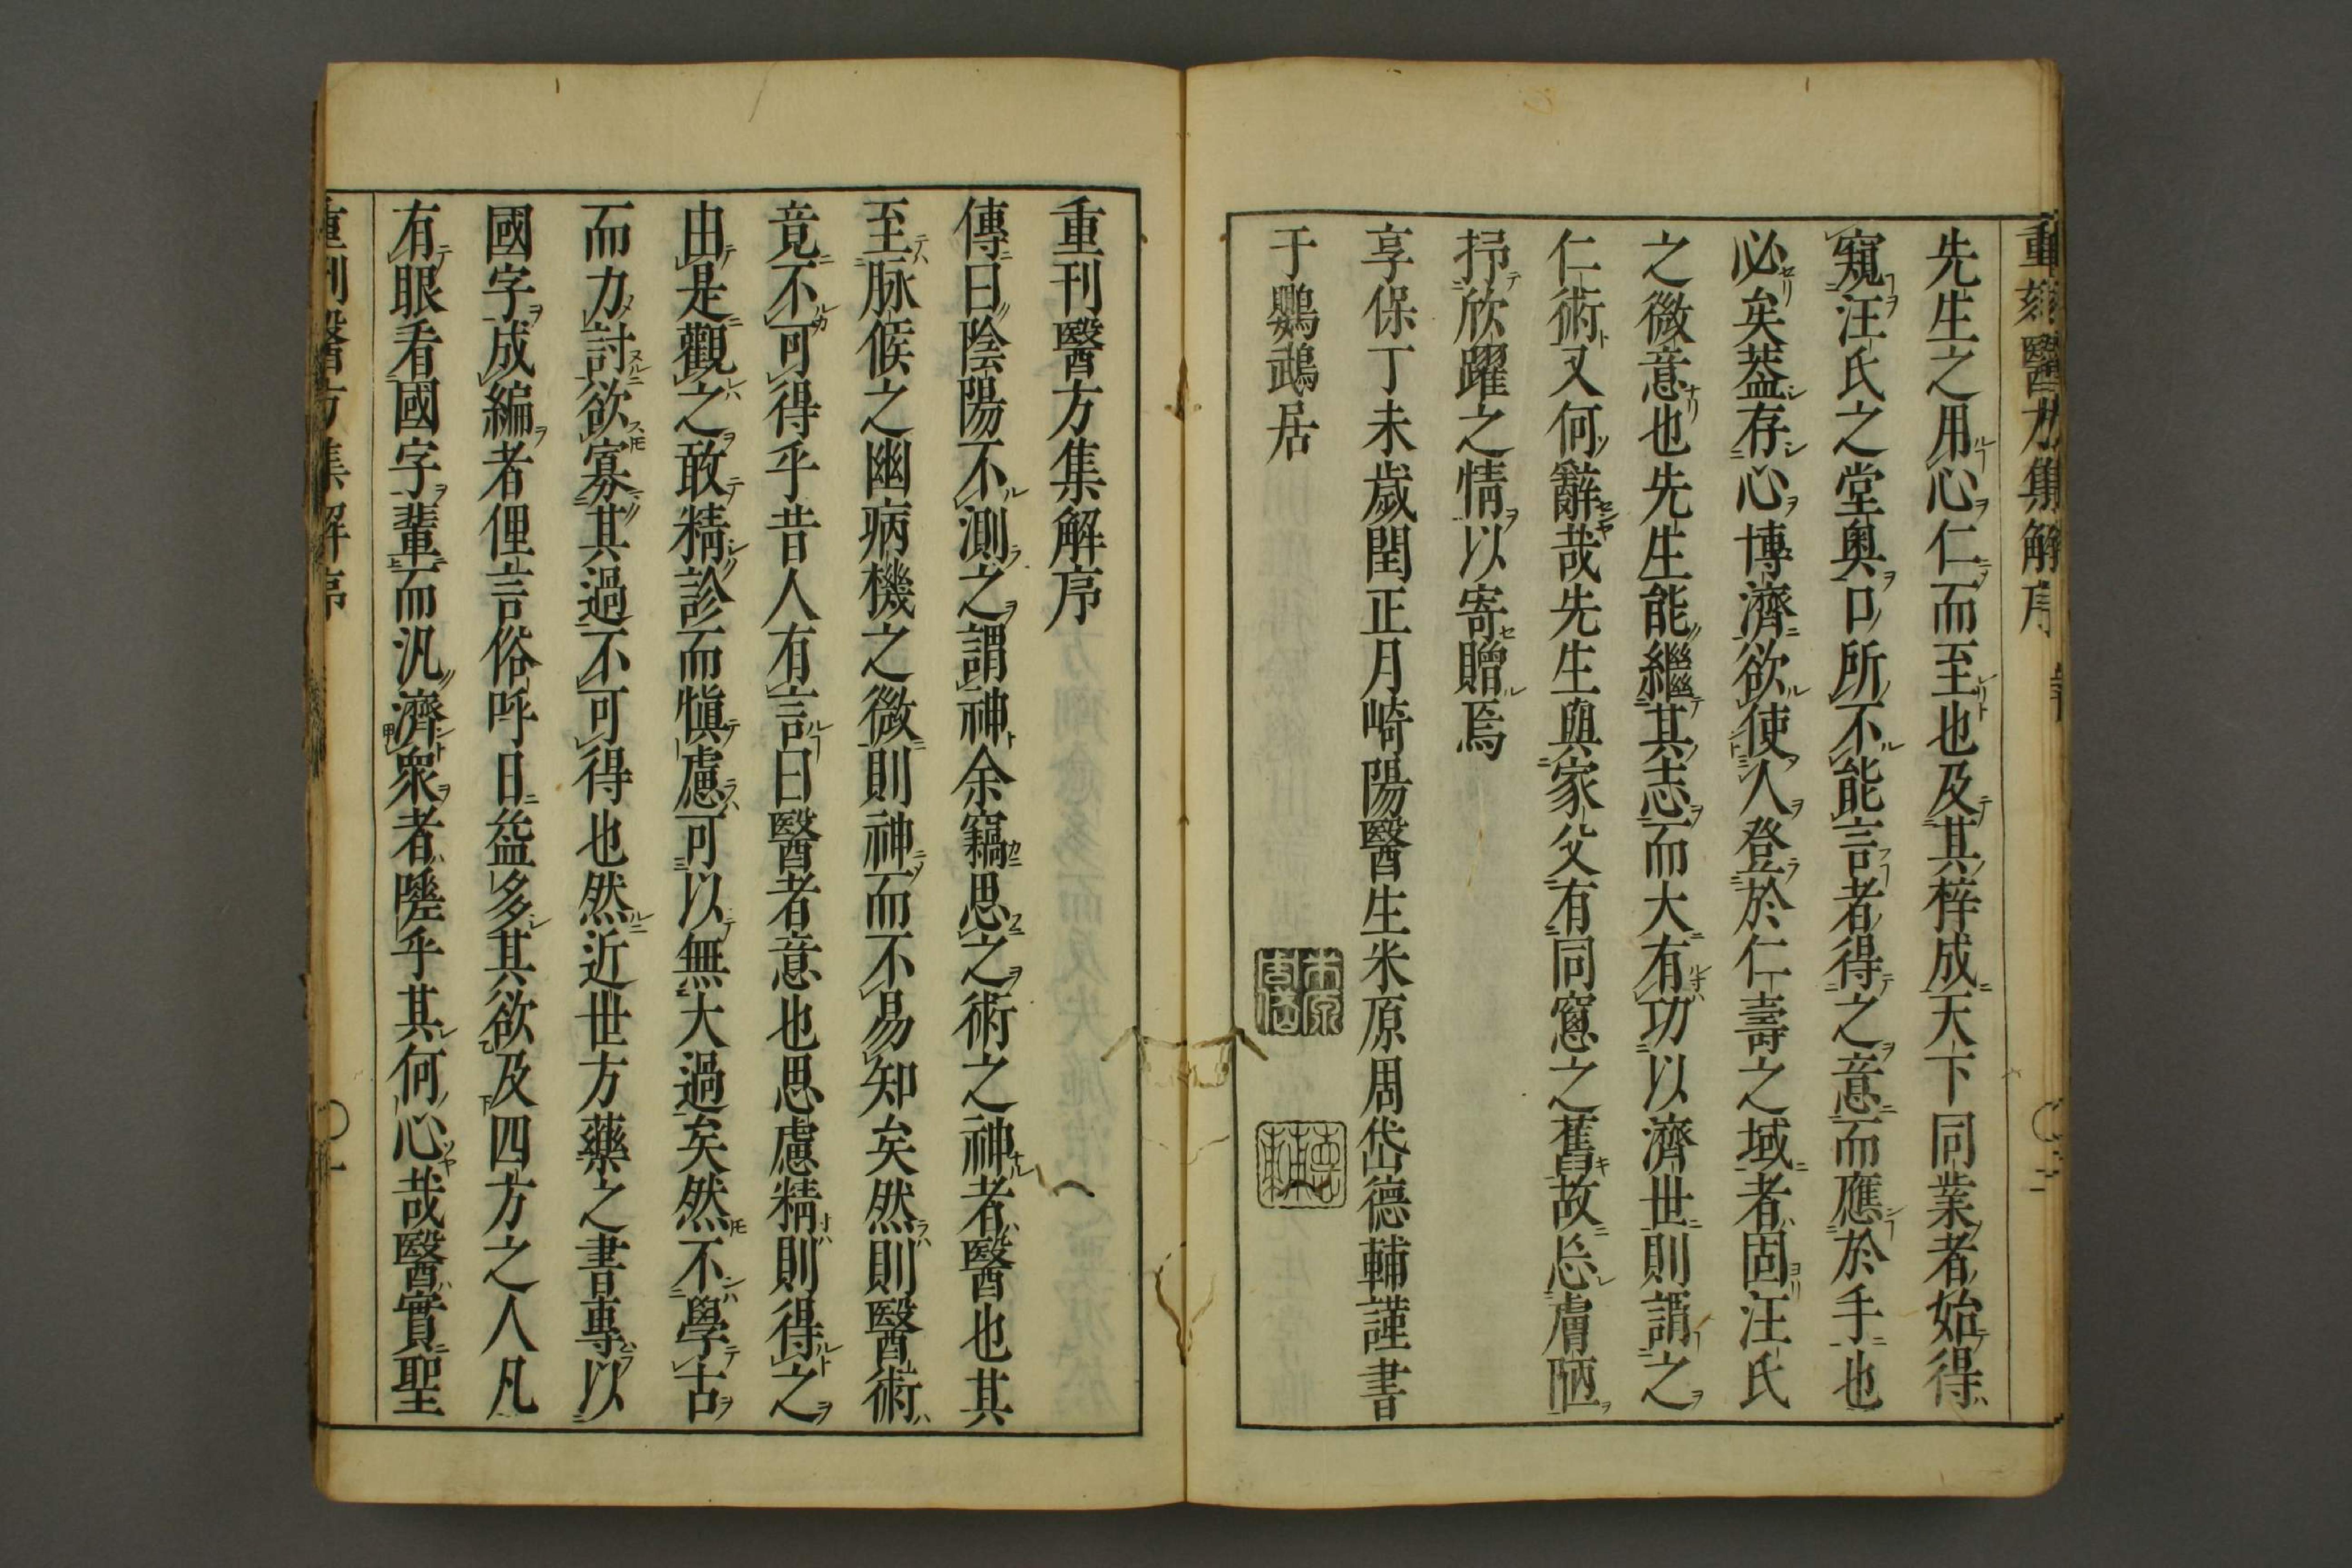 重刻醫方集解序
先生之用心仁而至也及其梓成天下同業者始得
窺汪氏之堂奧口所不能言者得之意而應於手也
必矣葢存心博濟欲使人登於仁壽之域者固汪氏
之微意也先生能繼其志而大有功以濟世則謂之
仁術又何辭哉先生與家父有同窓之舊故忘膚陋
抒欣躍之情以寄贈焉
享保丁未歲閏正月崎陽醫生米原周岱德輔謹書
于鸚鵡居
重刊醫方集解序
傳曰陰陽不測之謂神余竊思之術之神者醫也其
至脉候之幽病機之微則神而不易知矣然則醫術
竟不可得乎昔人有言曰醫者意也思慮精則得之
由是觀之敢精診而愼慮可以無大過矣然不學古
而力討欲寡其過不可得也然近世方藥之書專以
國字成編者俚言俗呼日益多其欲及四方之人凡
有眼看國字輩而汎濟衆者隘乎其何心哉醫實聖
重刊醫方集解序